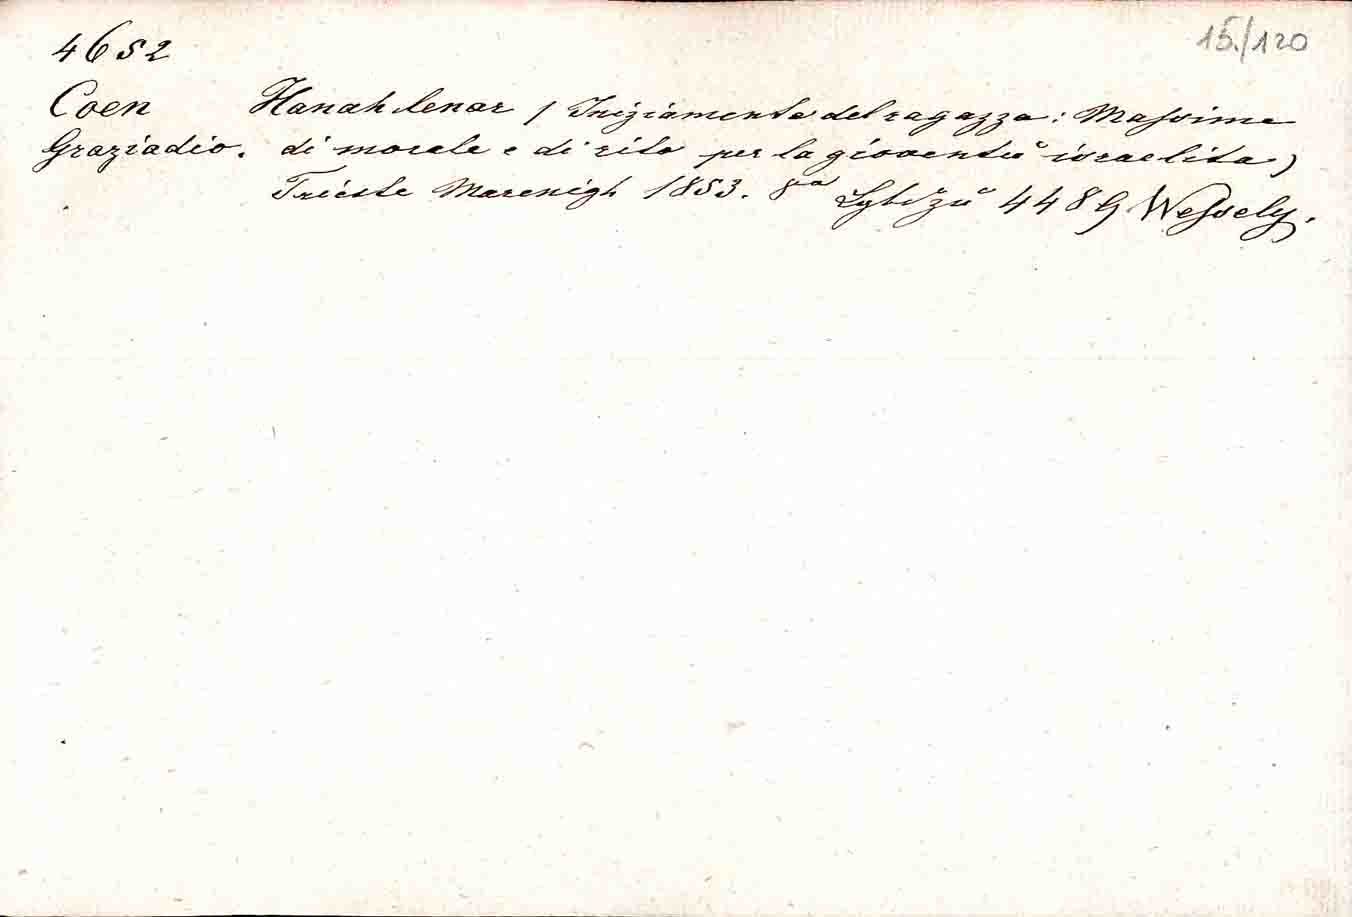 4652
15./120
Coen Hanah lenar / Iniziamento del ragazzo: Massime
Graziadio. di morale e di rito per la gioventù israelita)
Trieste Marenigh 1853. 8° 4489 Wessely.